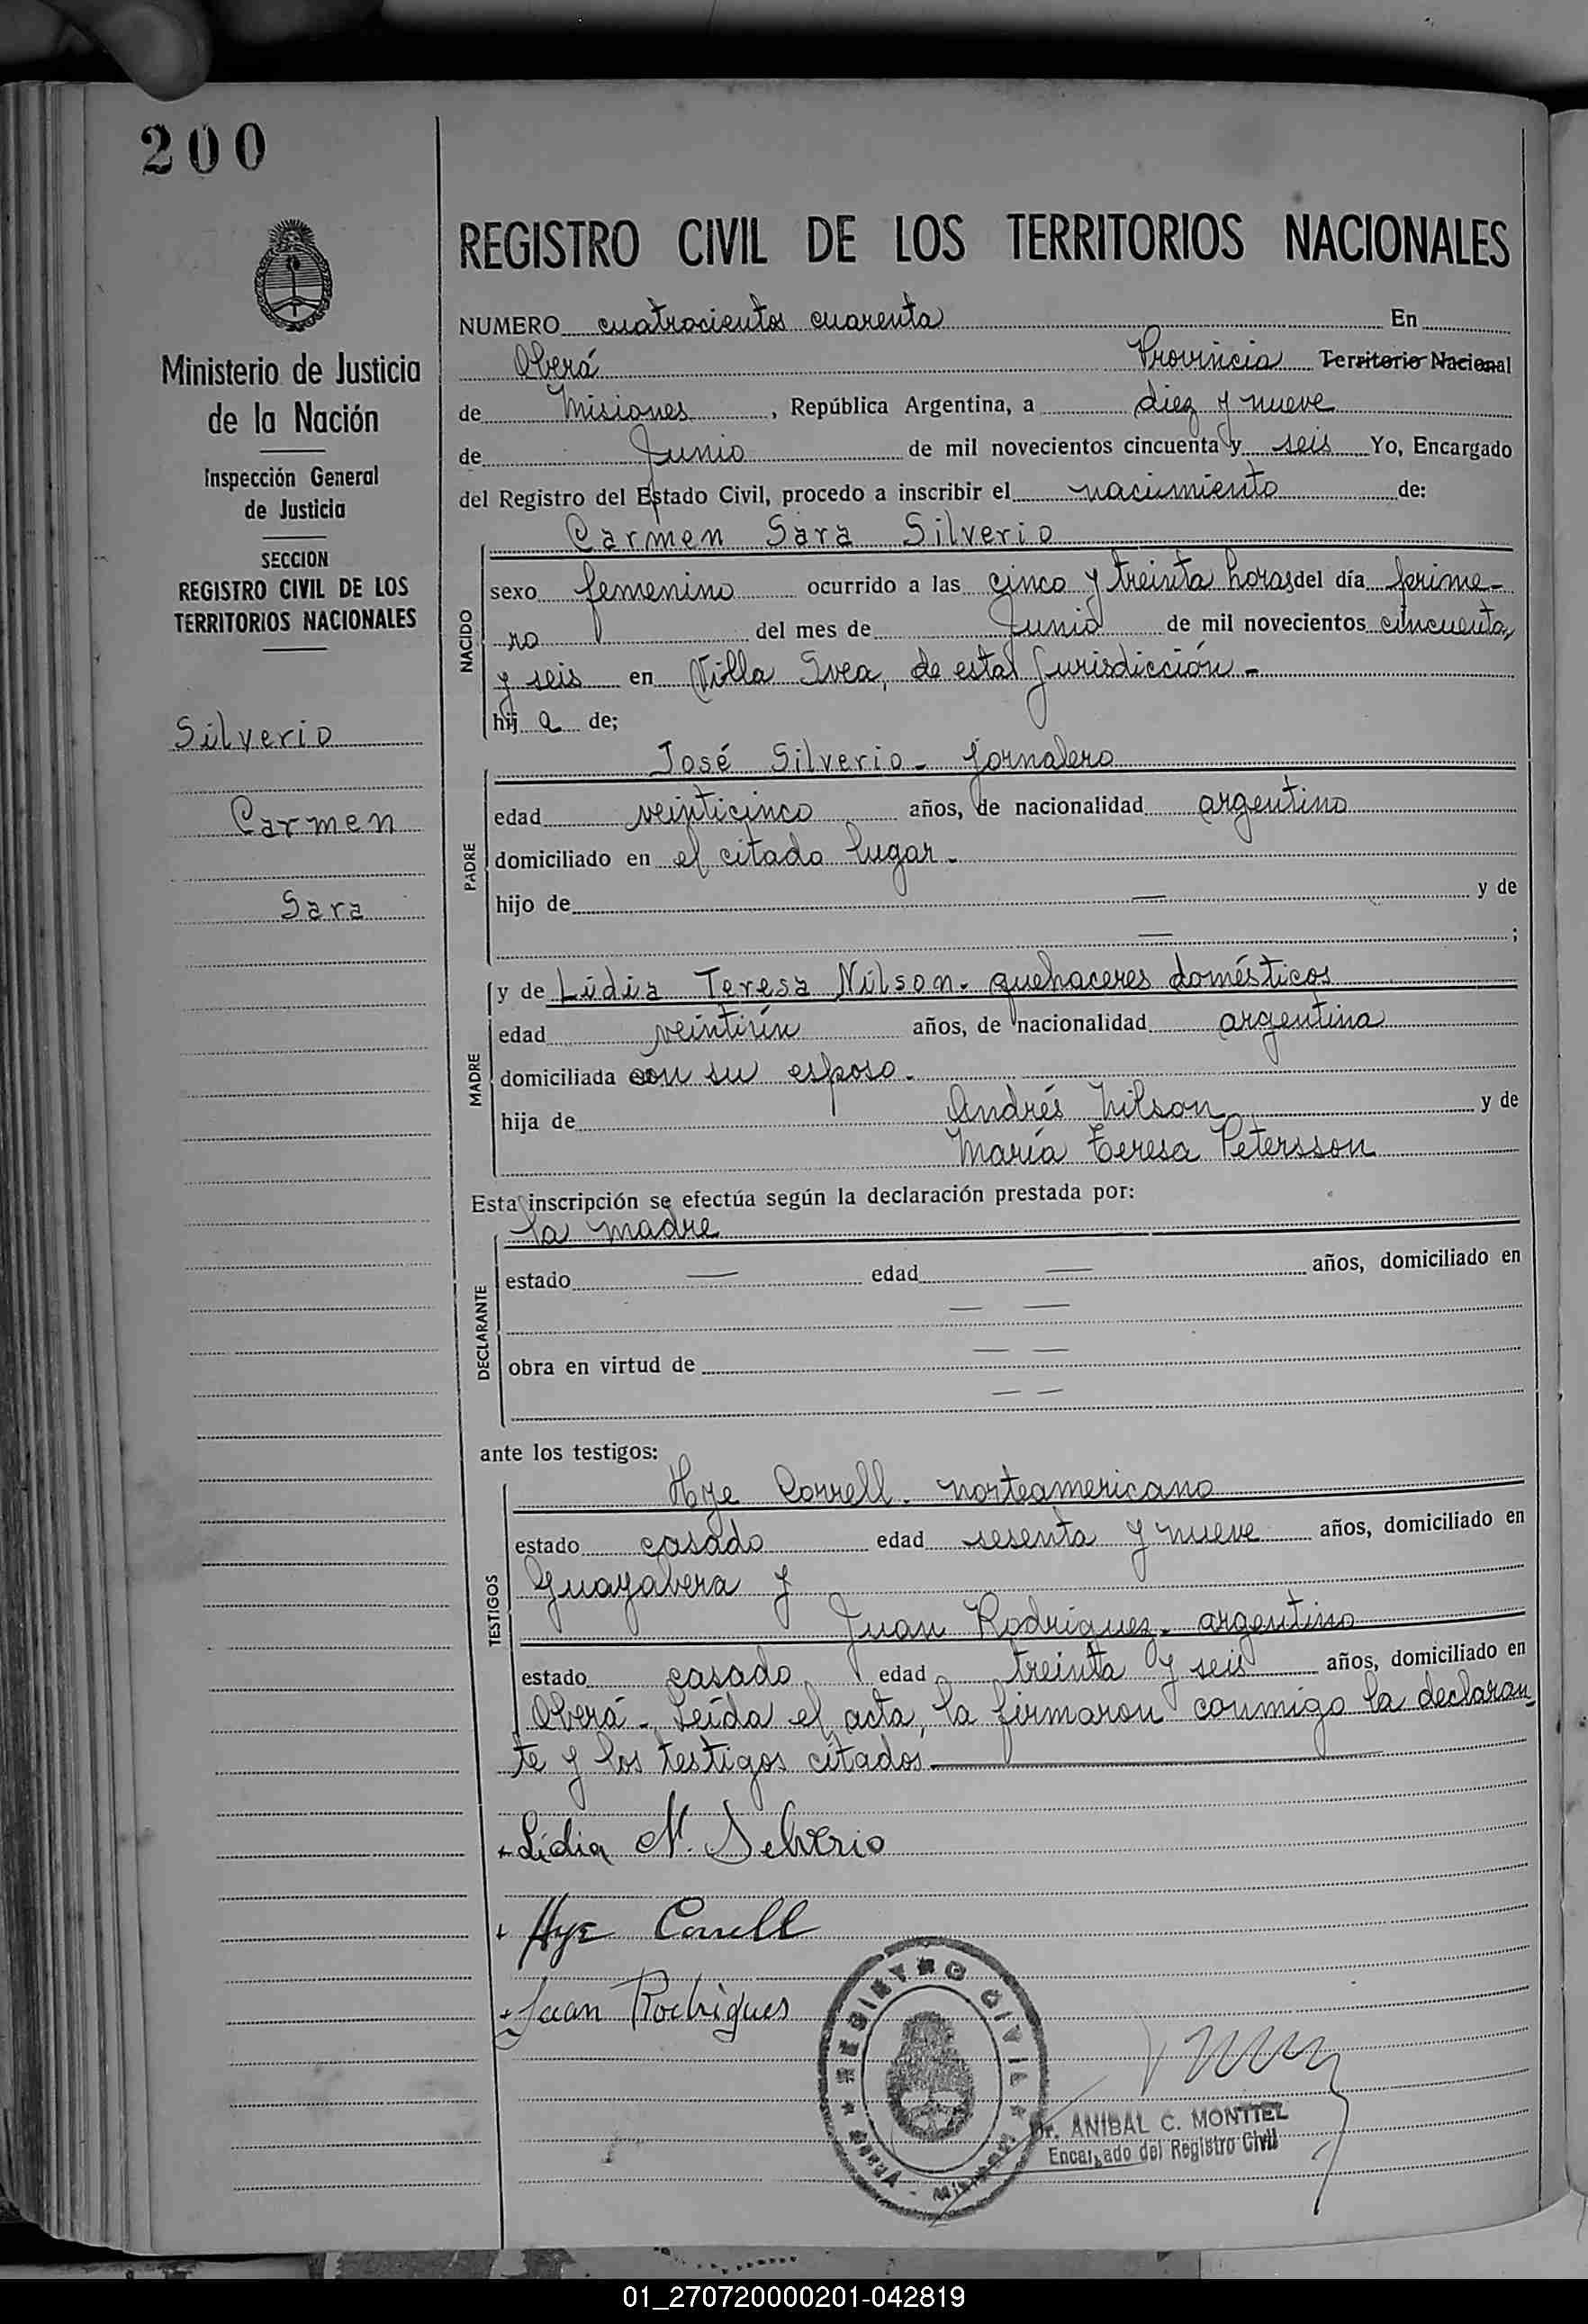 200
Ministerio de Justicia
de la Nación
Inspección General
de Justicia
SECCION
REGISTRO CIVIL DE LOS
TERRITORIOS NACIONALES
Silverio
Carmen
Sara
REGISTRO CIVIL DE LOS TERRITORIOS NACIONALES
NUMERO cuatrocientos cuarenta En
Oberá Provincia Territorio Nacional
de Misiones, República Argentina, a diez y nueve
de Junio de mil novecientos cincuenta y seis Yo, Encargado
del Registro del Estado Civil, procedo a inscribir el nacimiento de:
Carmen Sara Silverio
NACIDO
sexo femenino ocurrido a las cinco y treinta horas del día prime-
ro del mes de Junio de mil novecientos cincuenta
y seis en Villa Svea, de esta Jurisdicción-
hij a de;
PADRE
José Silverio - jornalero
edad veinticinco años, de nacionalidad argentino
domiciliado en el citado lugar -
hijo de — y de
— ;
MADRE
y de Lidia Teresa Nilson - quehaceres domésticos
edad veintiún años, de nacionalidad argentina
domiciliada con su esposo -
hija de Andrés Nilson y de
María Teresa Petersson
Esta inscripción se efectúa según la declaración prestada por:
la madre
DECLARANTE
estado — edad — años, domiciliado en
— —
obra en virtud de — —
— —
ante los testigos:
TESTIGOS
Hye Correll - norteamericano
estado casado edad sesenta y nueve años, domiciliado en
Guayabera y
Juan Rodriguez - argentino
estado casado edad treinta y seis años, domiciliado en
Oberá - Leída el acta, la firmaron conmigo la declaran-
te y los testigos citados
Lidia N. Selverio
Hye Correll
Juan Rodrigues
REGISTRO CIVIL
OBERÁ - MISIONES
Dr. ANIBAL C. MONTIEL
Encargado del Registro Civil
01_270720000201-042819